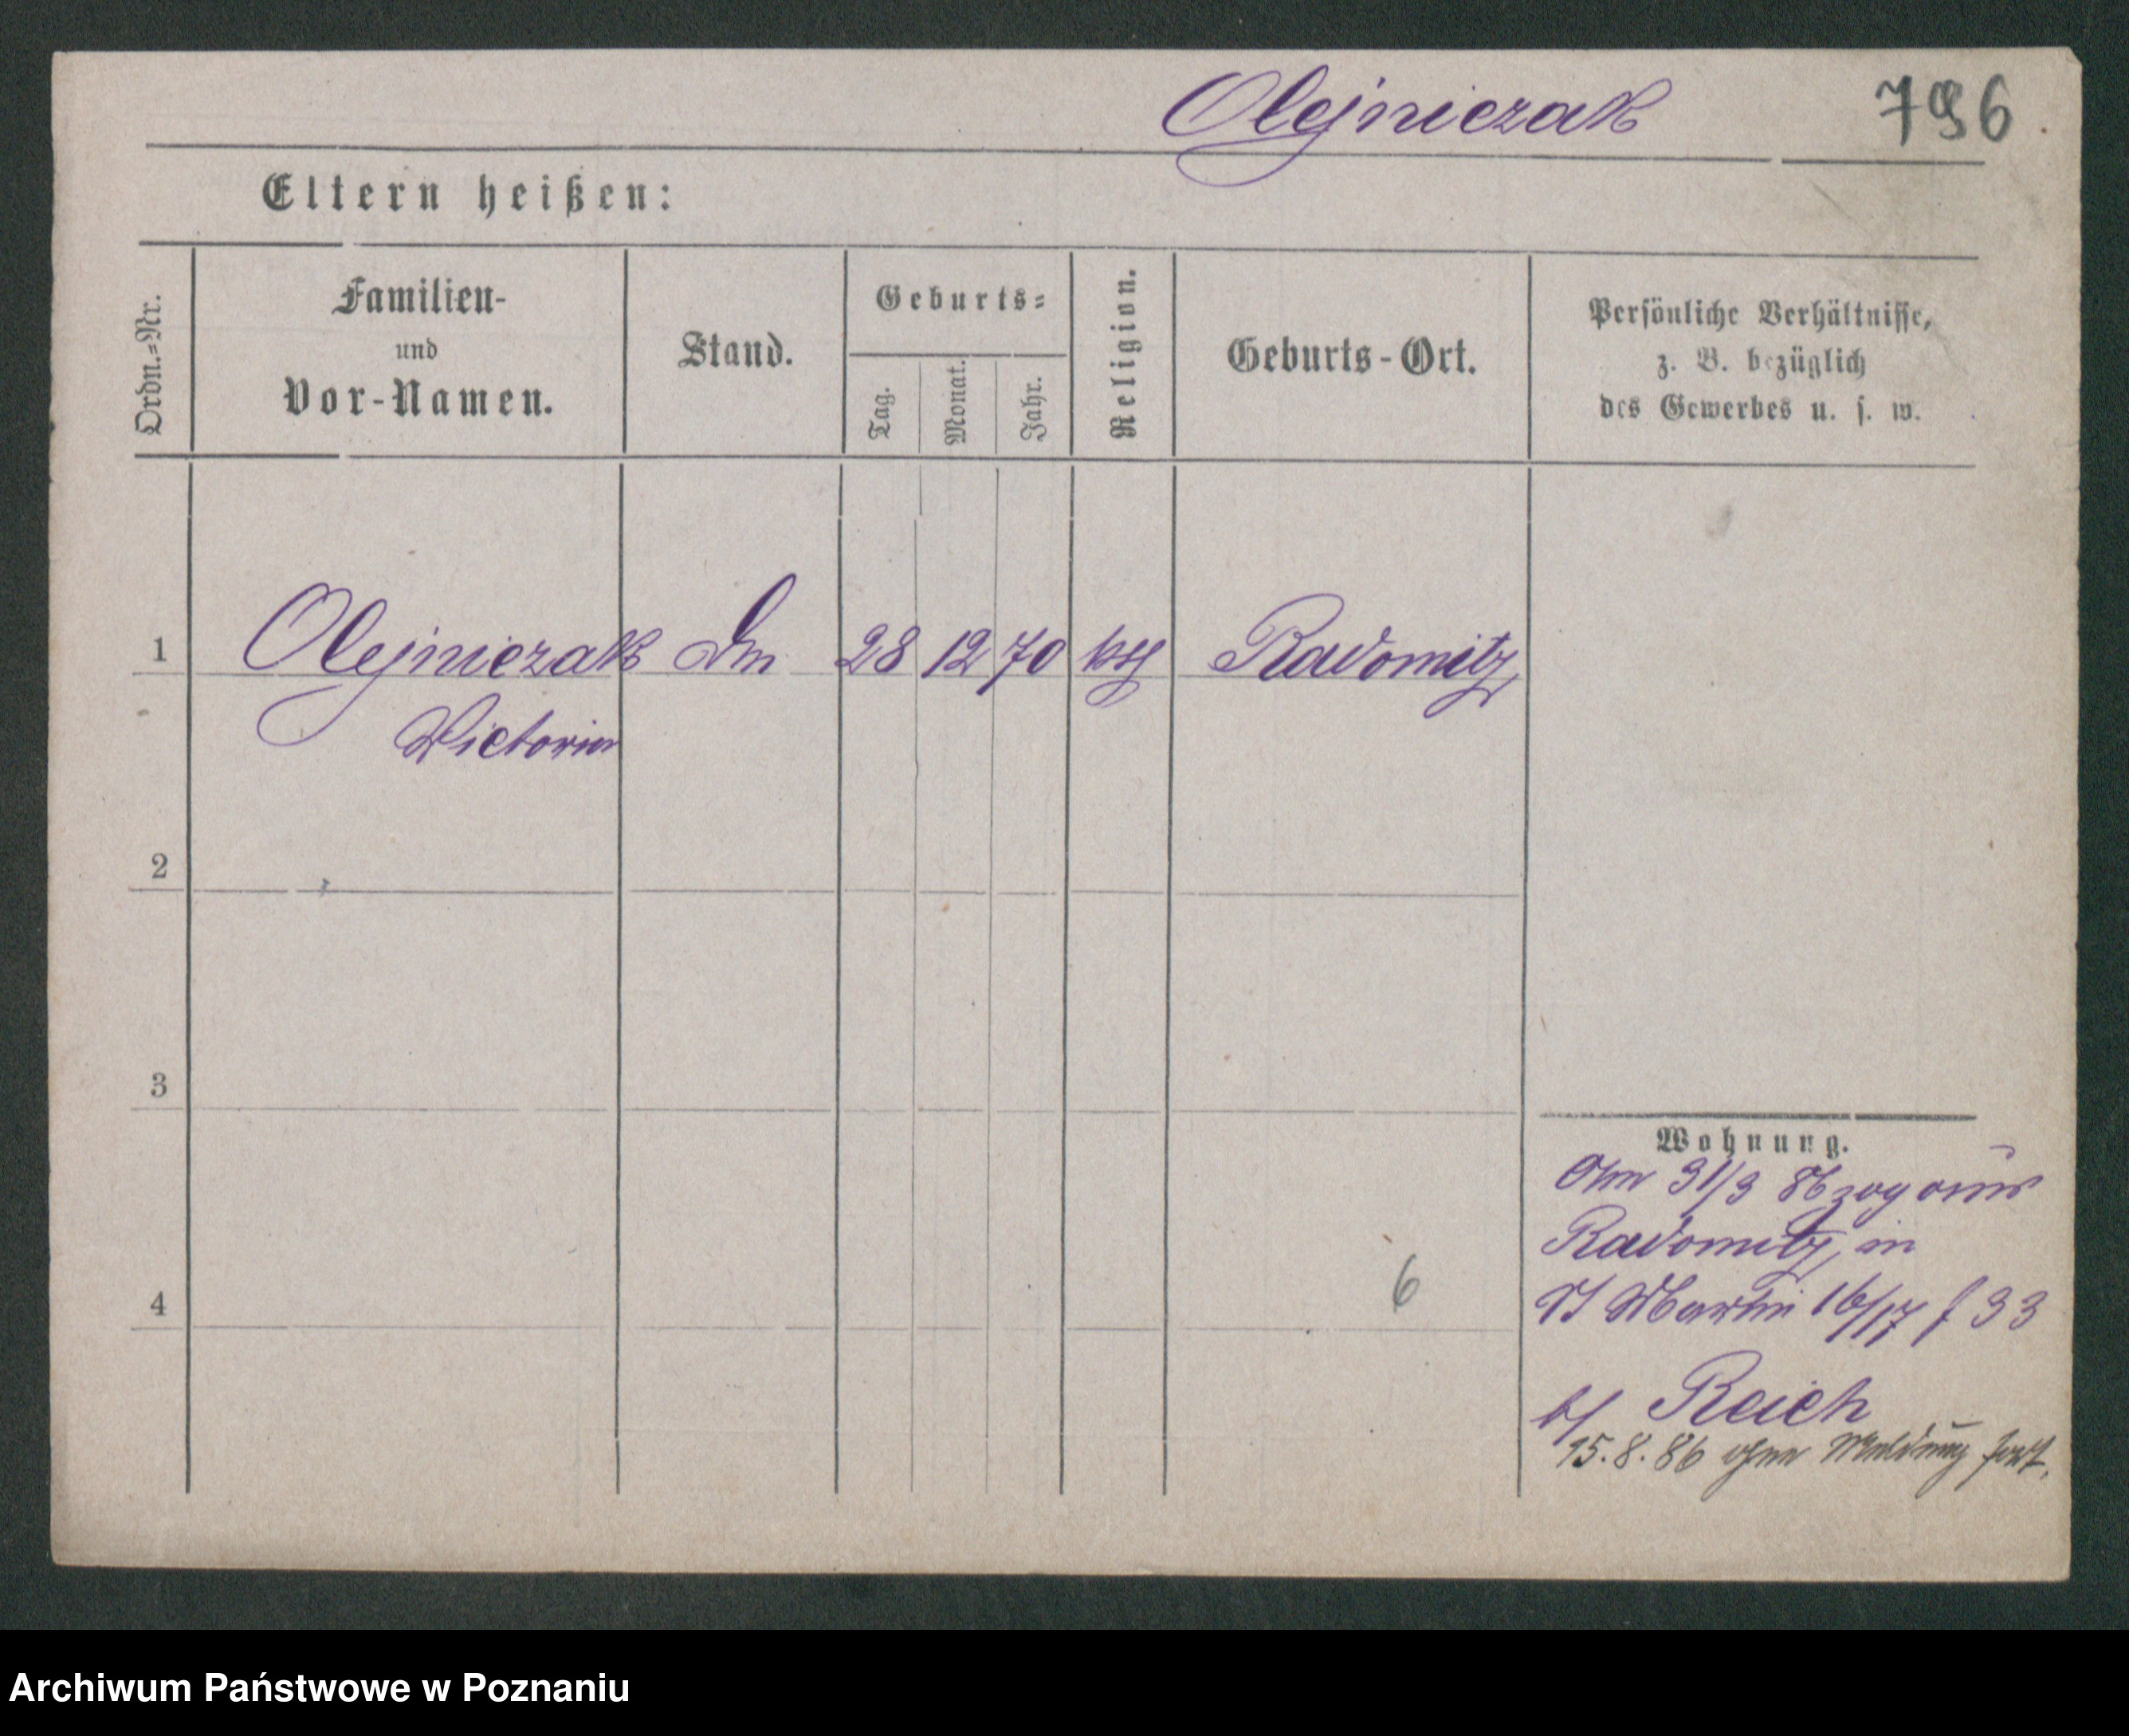 Olejniczak 796
Eltern heißen:
Ordn.=Nr.
Familien-
und
Vor-Namen.
Stand.
Geburts=
Tag.
Monat.
Jahr.
Religion.
Geburts-Ort.
Persönliche Verhältnisse,
z. B. bezüglich
des Gewerbes u. s. w.
1 Olejniczak 28 12 70 Radomitz
Victoria
2
3
Wohnung.
Am 31/3 86 zog aus
Radomitz in
St Martin 16/17 f 33
6
4
b/ Reich
15.8.86 ohne Meldung fort.
Archiwum Państwowe w Poznaniu